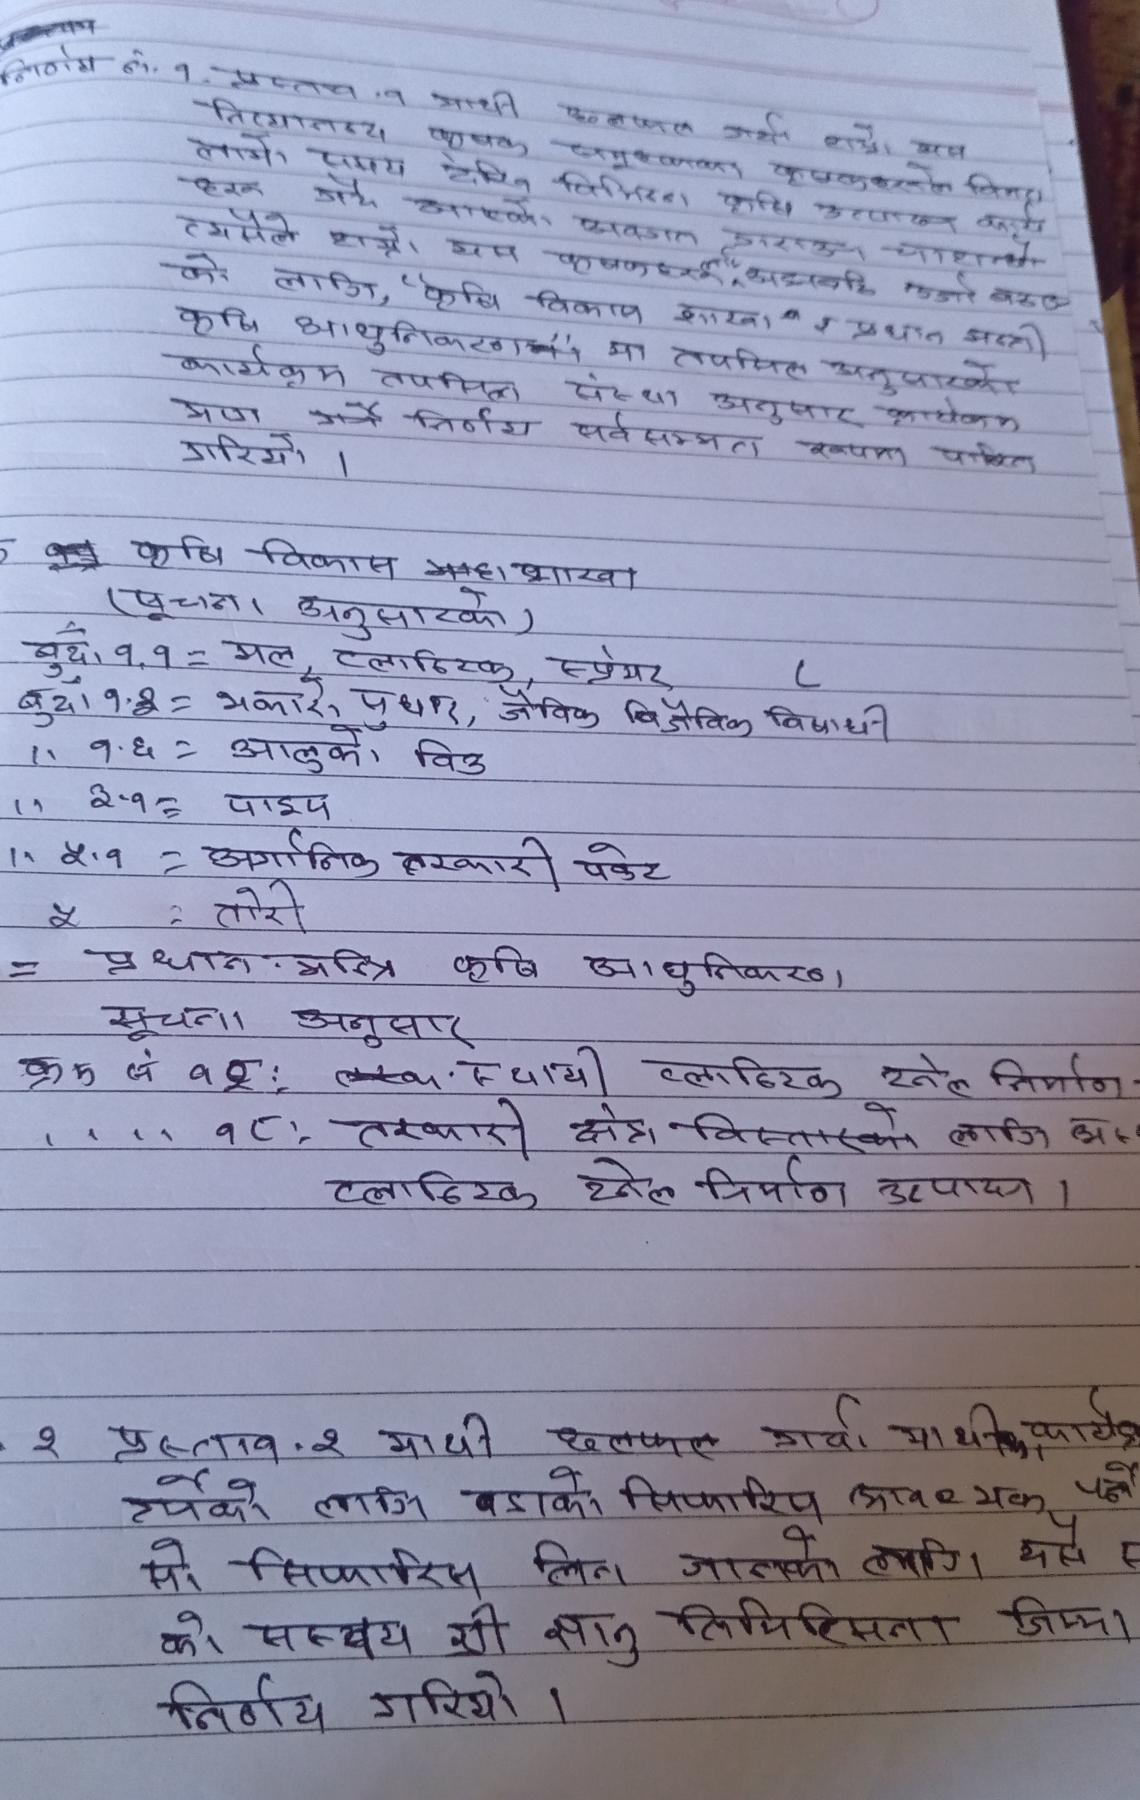 निर्णय नं. १. प्रस्ताव .१ माथी छलफल गर्दा हाम्रो यस
कृषक समुहका कृषकहरुले विगत
लामो समय देखि विभिन्न कृषि उत्पादन कार्य
गर्दै आएको अवगत गराउन चाहान्छौ
त्यसैले हाम्रो यस कृषकहरुले
को लागि, "कृषि विकास शाखा" र प्रधान मन्त्री
कृषि आधुनिकरण" मा तपसिल अनुसारको
कार्यक्रम तपसिल संस्था अनुसार कार्यक्रम
माग गर्ने निर्णय सर्वसम्मत रुपमा पारित
गरियो ।
कृषि विकास महाशाखा
(सूचना अनुसारको)
बुदाँ १.१ = मल, प्लाष्टिक, स्प्रेयर
बुदाँ १.३ = भकारो सुधार, जैविक विजैविक विषाधी
।। १.६ = आलुको विउ
।। ३.१ = पाइप
।। ५.१ = अर्गानिक तरकारी पकेट
५ : तोरी
= प्रधान मन्त्रि कृषि आधुनिकरण
सूचना अनुसार
क्रम नं १२: स्थायी प्लाष्टिक टनेल निर्माण
।।।। १८: तरकारी क्षेत्र विस्तारको लागि
प्लाष्टिक टनेल निर्माण उत्पादन ।
२ प्रस्ताव.२ माथी छलफल गर्दा माथीका
लागि वडाको सिफारिस आवश्यक पर्ने
सो सिफारिस लिन जानको लागि यसै
को सदस्य श्री सानु जिम्मा
निर्णय गरियो ।